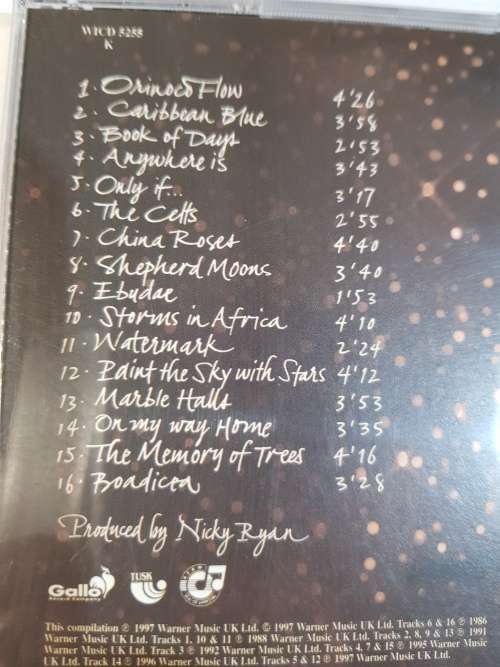 WICD 5255
K
1 · Orinoco Flow 4'26
2 · Caribbean Blue 3'58
3 · Book of Days 2'53
4 · Anywhere is 3'43
5 · Only if... 3'17
6 · The Celts 2'55
7 · China Roses 4'40
8 · Shepherd Moons 3'40
9 · Ebudae 1'53
10 · Storms in Africa 4'10
11 · Watermark 2'24
12 · Paint the Sky with Stars 4'12
13 · Marble Halls 3'53
14 · On my way Home 3'35
15 · The Memory of Trees 4'16
16 · Boadicea 3'28
Produced by Nicky Ryan
Gallo
Record Company
TUSK
This compilation ℗ 1997 Warner Music UK Ltd. © 1997 Warner Music UK Ltd. Tracks 6 & 16 ℗ 1986
Warner Music UK Ltd. Tracks 1, 10 & 11 ℗ 1988 Warner Music UK Ltd. Tracks 2, 8, 9 & 13 ℗ 1991
Warner Music UK Ltd. Track 3 ℗ 1992 Warner Music UK Ltd. Tracks 4, 7 & 15 ℗ 1995 Warner Music
UK Ltd. Track 14 ℗ 1996 Warner Music UK Ltd. Tracks 5 & 12 ℗ 1997 Warner Music UK Ltd.